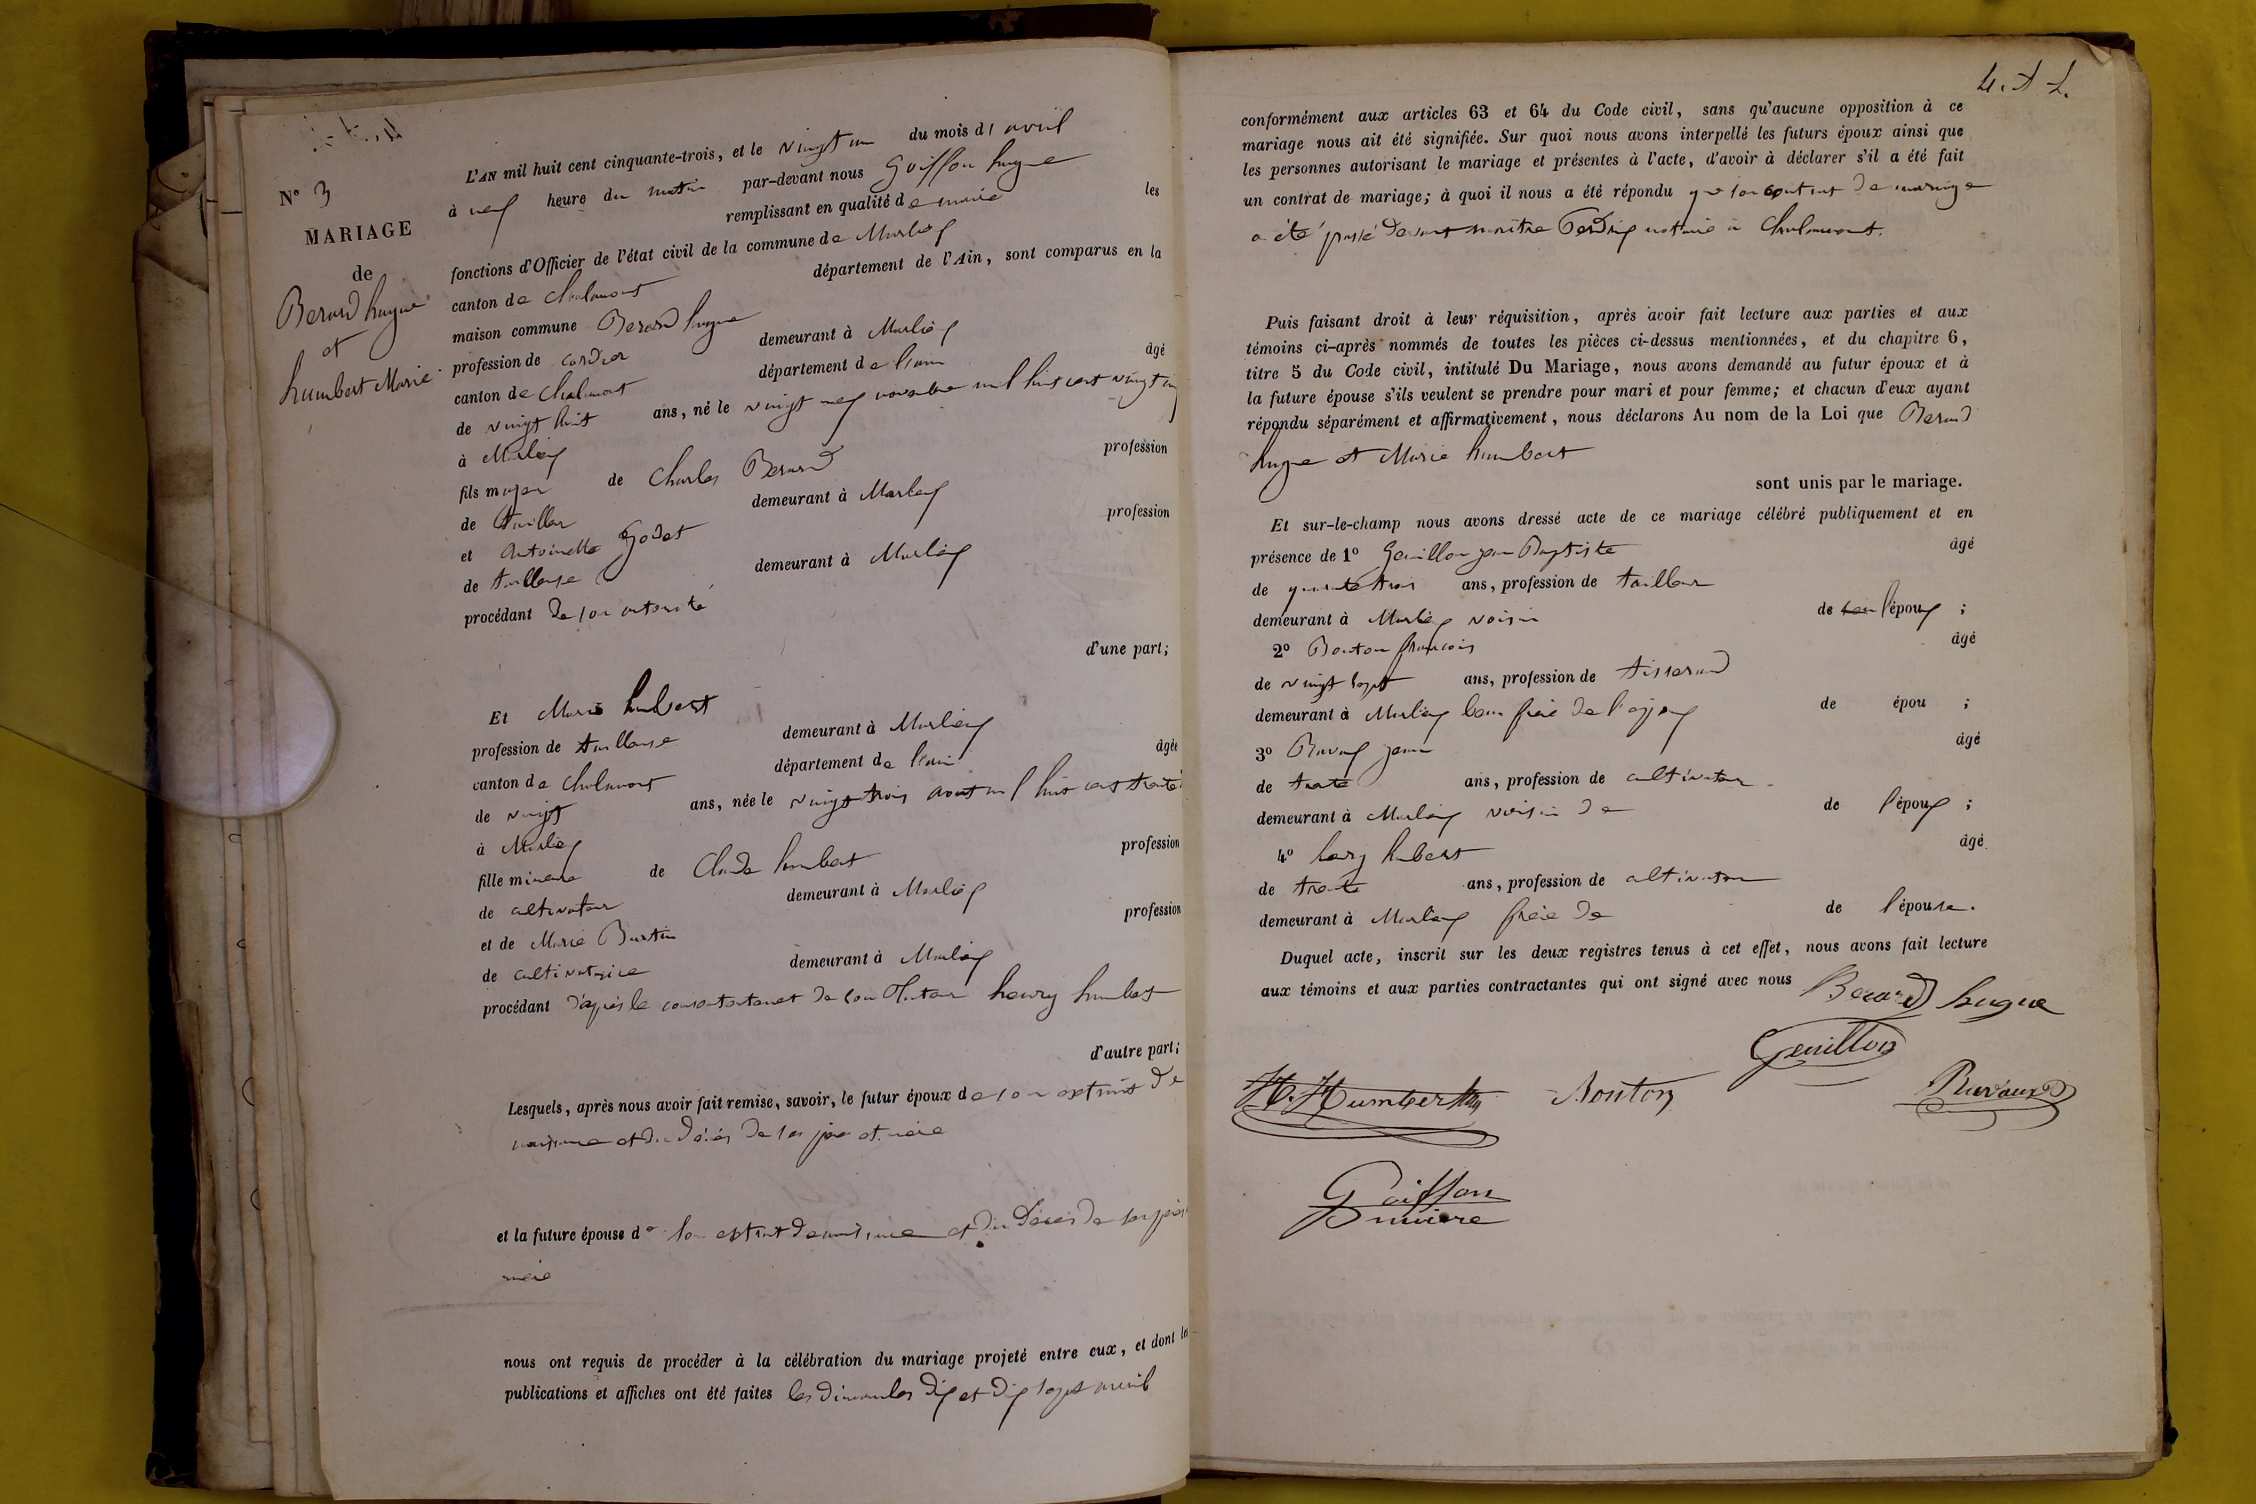 N° 3
MARIAGE
de
Berard hugue
et
humbert Marie.
L'AN mil huit cent cinquante-trois, et le vingt un du mois d' avril
à neuf heure du matin par-devant nous Goiffon hugue
remplissant en qualité de maire les
fonctions d'Officier de l'état civil de la commune de Marlieux
canton de Chalamont département de l'Ain, sont comparus en la
maison commune Berard hugue
profession de cordier demeurant à Marlieux
canton de Chalamont département de l'ain âgé
de vingt huit ans, né le vingt neuf novembre mil huit cent vingt
à Marlieux
fils majeur de Charles Berard profession
de tailleur demeurant à Marlieux
et Antoinette Godet profession
de tailleuse demeurant à Marlieux
procédant de son autorité
d'une part;
Et Marie humbert
profession de tailleuse demeurant à Marlieux
canton de Chalamont département de l'ain âgée
de vingt ans, née le vingt trois août mil huit cent trente
à Marlieux
fille mineure de Claude humbert profession
de cultivateur demeurant à Marlieux
et de Marie Burtin profession
de cultivatrice demeurant à Marlieux
procédant d'après le consentement de son tuteur henry humbert
d'autre part;
Lesquels, après nous avoir fait remise, savoir, le futur époux de son extrait de
naissance et du décès de ses père et mère
et la future épouse de son extrait de naissance et du décès de ses père
mère
nous ont requis de procéder à la célébration du mariage projeté entre eux, et dont les
publications et affiches ont été faites les dimanches dix et dix sept avril
4. A L.
conformément aux articles 63 et 64 du Code civil, sans qu'aucune opposition à ce
mariage nous ait été signifiée. Sur quoi nous avons interpellé les futurs époux ainsi que
les personnes autorisant le mariage et présentes à l'acte, d'avoir à déclarer s'il a été fait
un contrat de mariage; à quoi il nous a été répondu que son contrat de mariage
a été passé devant maître notaire à Chalamont.
Puis faisant droit à leur réquisition, après avoir fait lecture aux parties et aux
témoins ci-après nommés de toutes les pièces ci-dessus mentionnées, et du chapitre 6,
titre 5 du Code civil, intitulé Du Mariage, nous avons demandé au futur époux et à
la future épouse s'ils veulent se prendre pour mari et pour femme; et chacun d'eux ayant
répondu séparément et affirmativement, nous déclarons Au nom de la Loi que Berard
hugue et Marie humbert
sont unis par le mariage.
Et sur-le-champ nous avons dressé acte de ce mariage célébré publiquement et en
présence de 1° Genillon jean Baptiste âgé
de ans, profession de tailleur
demeurant à Marlieux voisin de l'époux ;
2° Bouton françois âgé
de vingt sept ans, profession de tisserand
demeurant à Marlieux beau frère de l'époux de épou ;
3° Ravaux jean âgé
de trente ans, profession de cultivateur
demeurant à Marlieux voisin de de l'époux ;
4° henry humbert âgé
de trente ans, profession de cultivateur
demeurant à Marlieux frère de de l'épouse.
Duquel acte, inscrit sur les deux registres tenus à cet effet, nous avons fait lecture
aux témoins et aux parties contractantes qui ont signé avec nous Berard hugue
Genillon
H. Humbert Bouton Ravaux
Goiffon